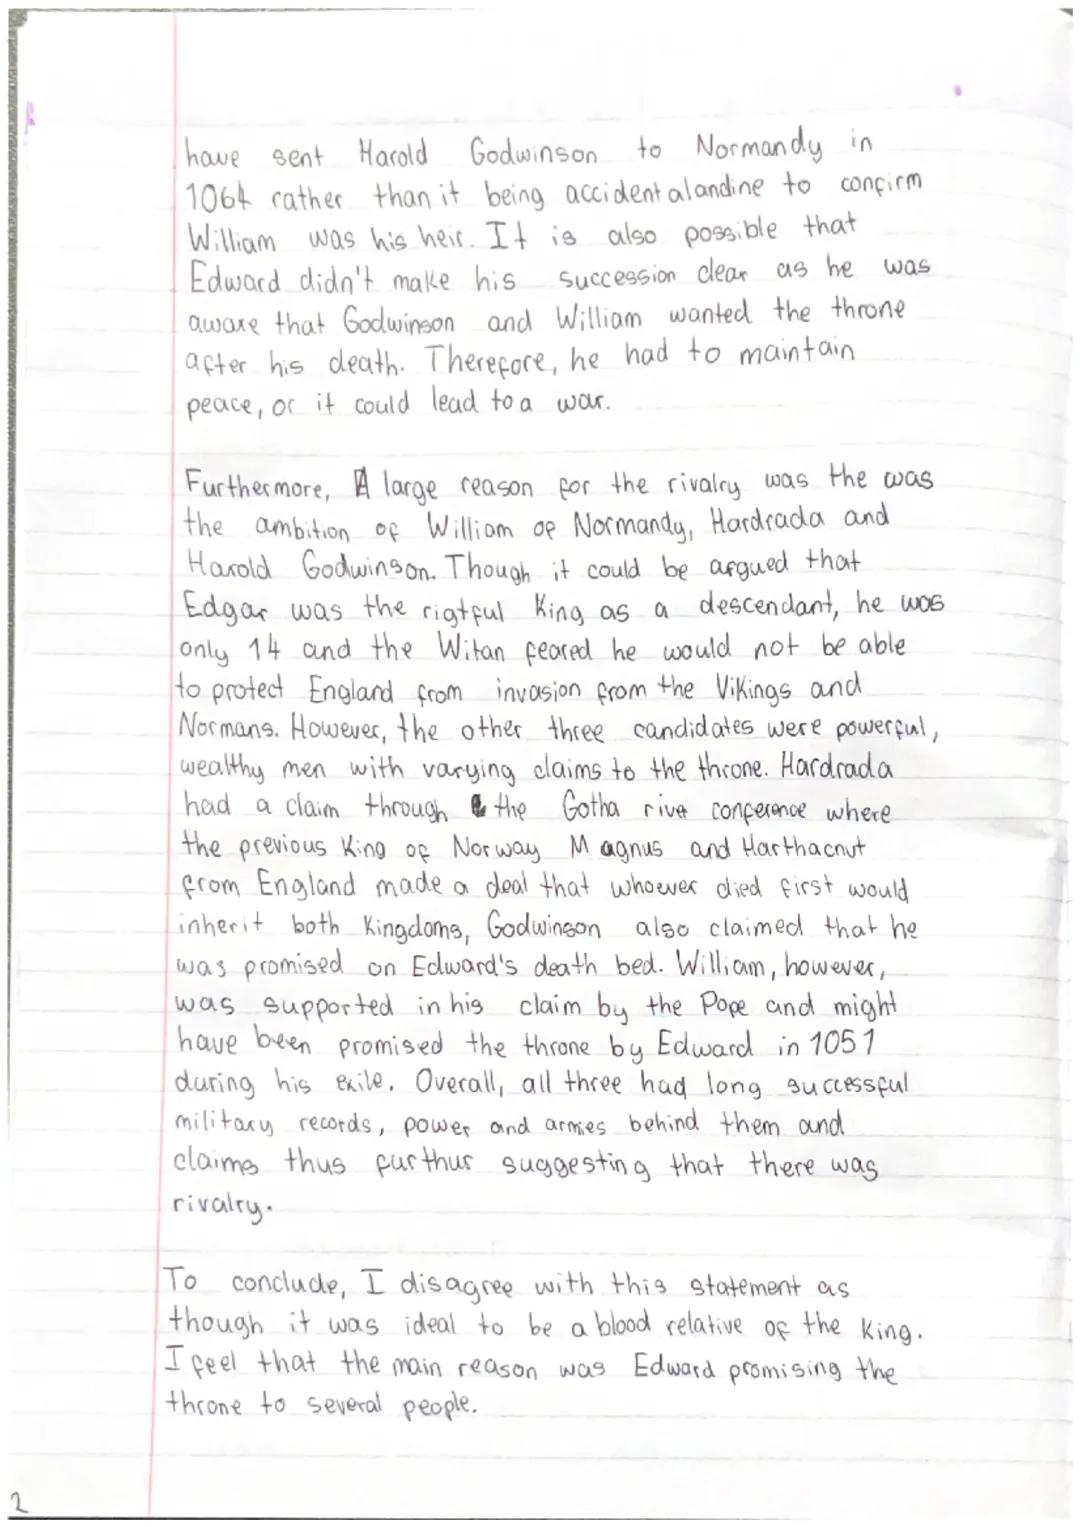 have sent Harold Godwinson to Normandy in
1064 rather than it being accident alandine to confirm
William was his heir. It is also possible that
Edward didn't make his succession clear as he was
aware that Godwinson and William wanted the throne
after his death. Therefore, he had to maintain
peace, or it could lead to a war.
Furthermore, A large reason for the rivalry was the was
the ambition of William of Normandy, Hardrada and
Harold Godwinson. Though it could be argued that
Edgar was the rigtful King as a descendant, he was
only 14 and the Witan feared he would not be able
to protect England from invasion from the Vikings and
Normans. However, the other three candidates were powerful,
wealthy men with varying claims to the throne. Hardrada
had a claim through the Gotha rive conference where
the previous King of Norway Magnus and Harthacnut
from England made a deal that whoever died first would
inherit both Kingdoms, Godwinson also claimed that he
was promised on Edward's death bed. William, however,
was supported in his claim by the Pope and might
have been promised the throne by Edward in 1051
during his exile. Overall, all three had long successful
military records, power and armies behind them and
claims thus furthur suggesting that there was
rivalry.
To conclude, I disagree with this statement as
though it was ideal to be a blood relative of the King.
I feel that the main reason was Edward promising the
throne to several people.
2